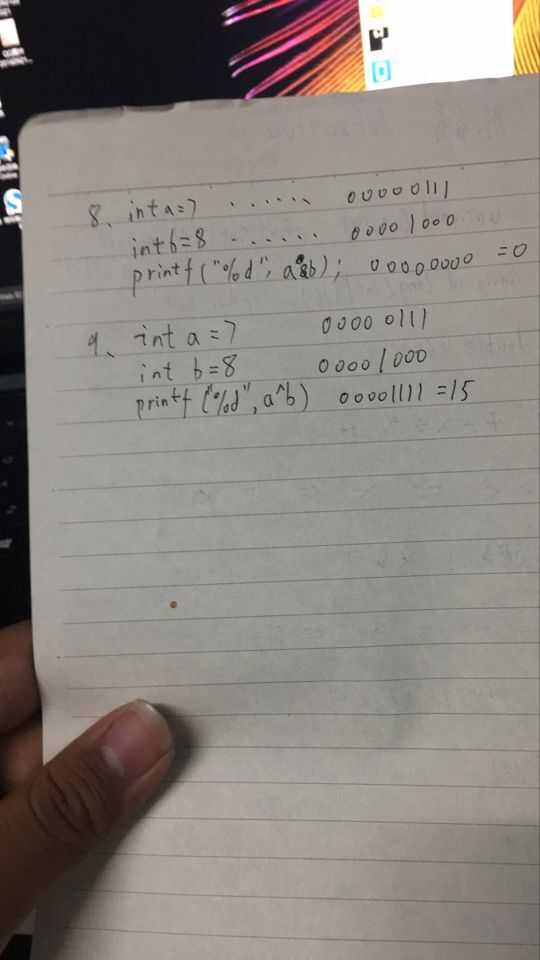 8、int a=7 ...... 00000111
int b=8 ...... 00001000
printf("%d", a&b); 00000000 =0
9、int a=7 0000 0111
int b=8 00001000
printf("%d", a^b) 00001111 =15